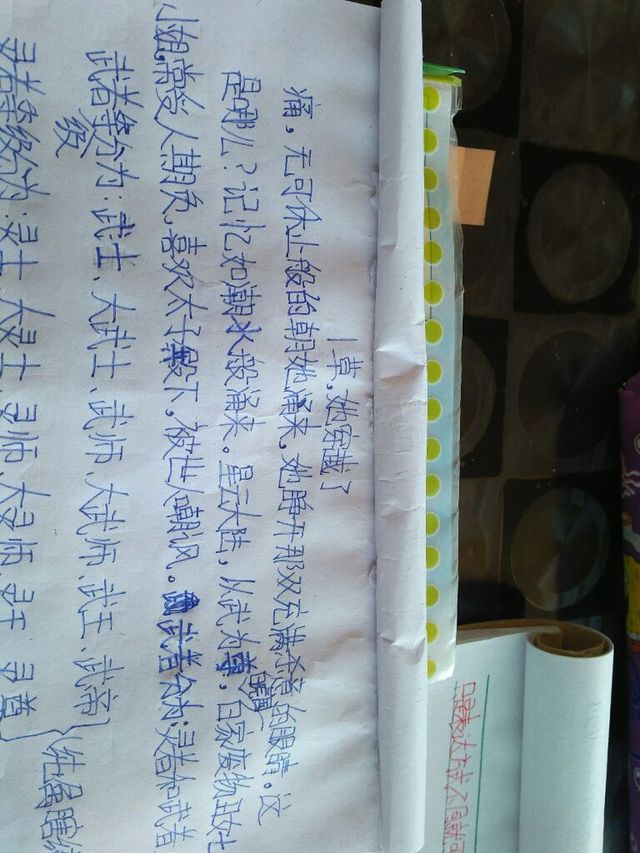 1章,她穿越了
痛,无可休止般的朝她涌来,她睁开那双充满杀意的眼睛。这
是哪儿?记忆如潮水般涌来。星云大陆,从武为尊,白家废物
小姐,常受人期负,喜欢太子殿下,被世人嘲讽。武者分为:灵者和武者
武者等级分为:武士、大武士、武师、大武师、武王、武帝
灵者等级分为:灵士、大灵士、灵师、大灵师、灵王、灵尊
纯属瞎